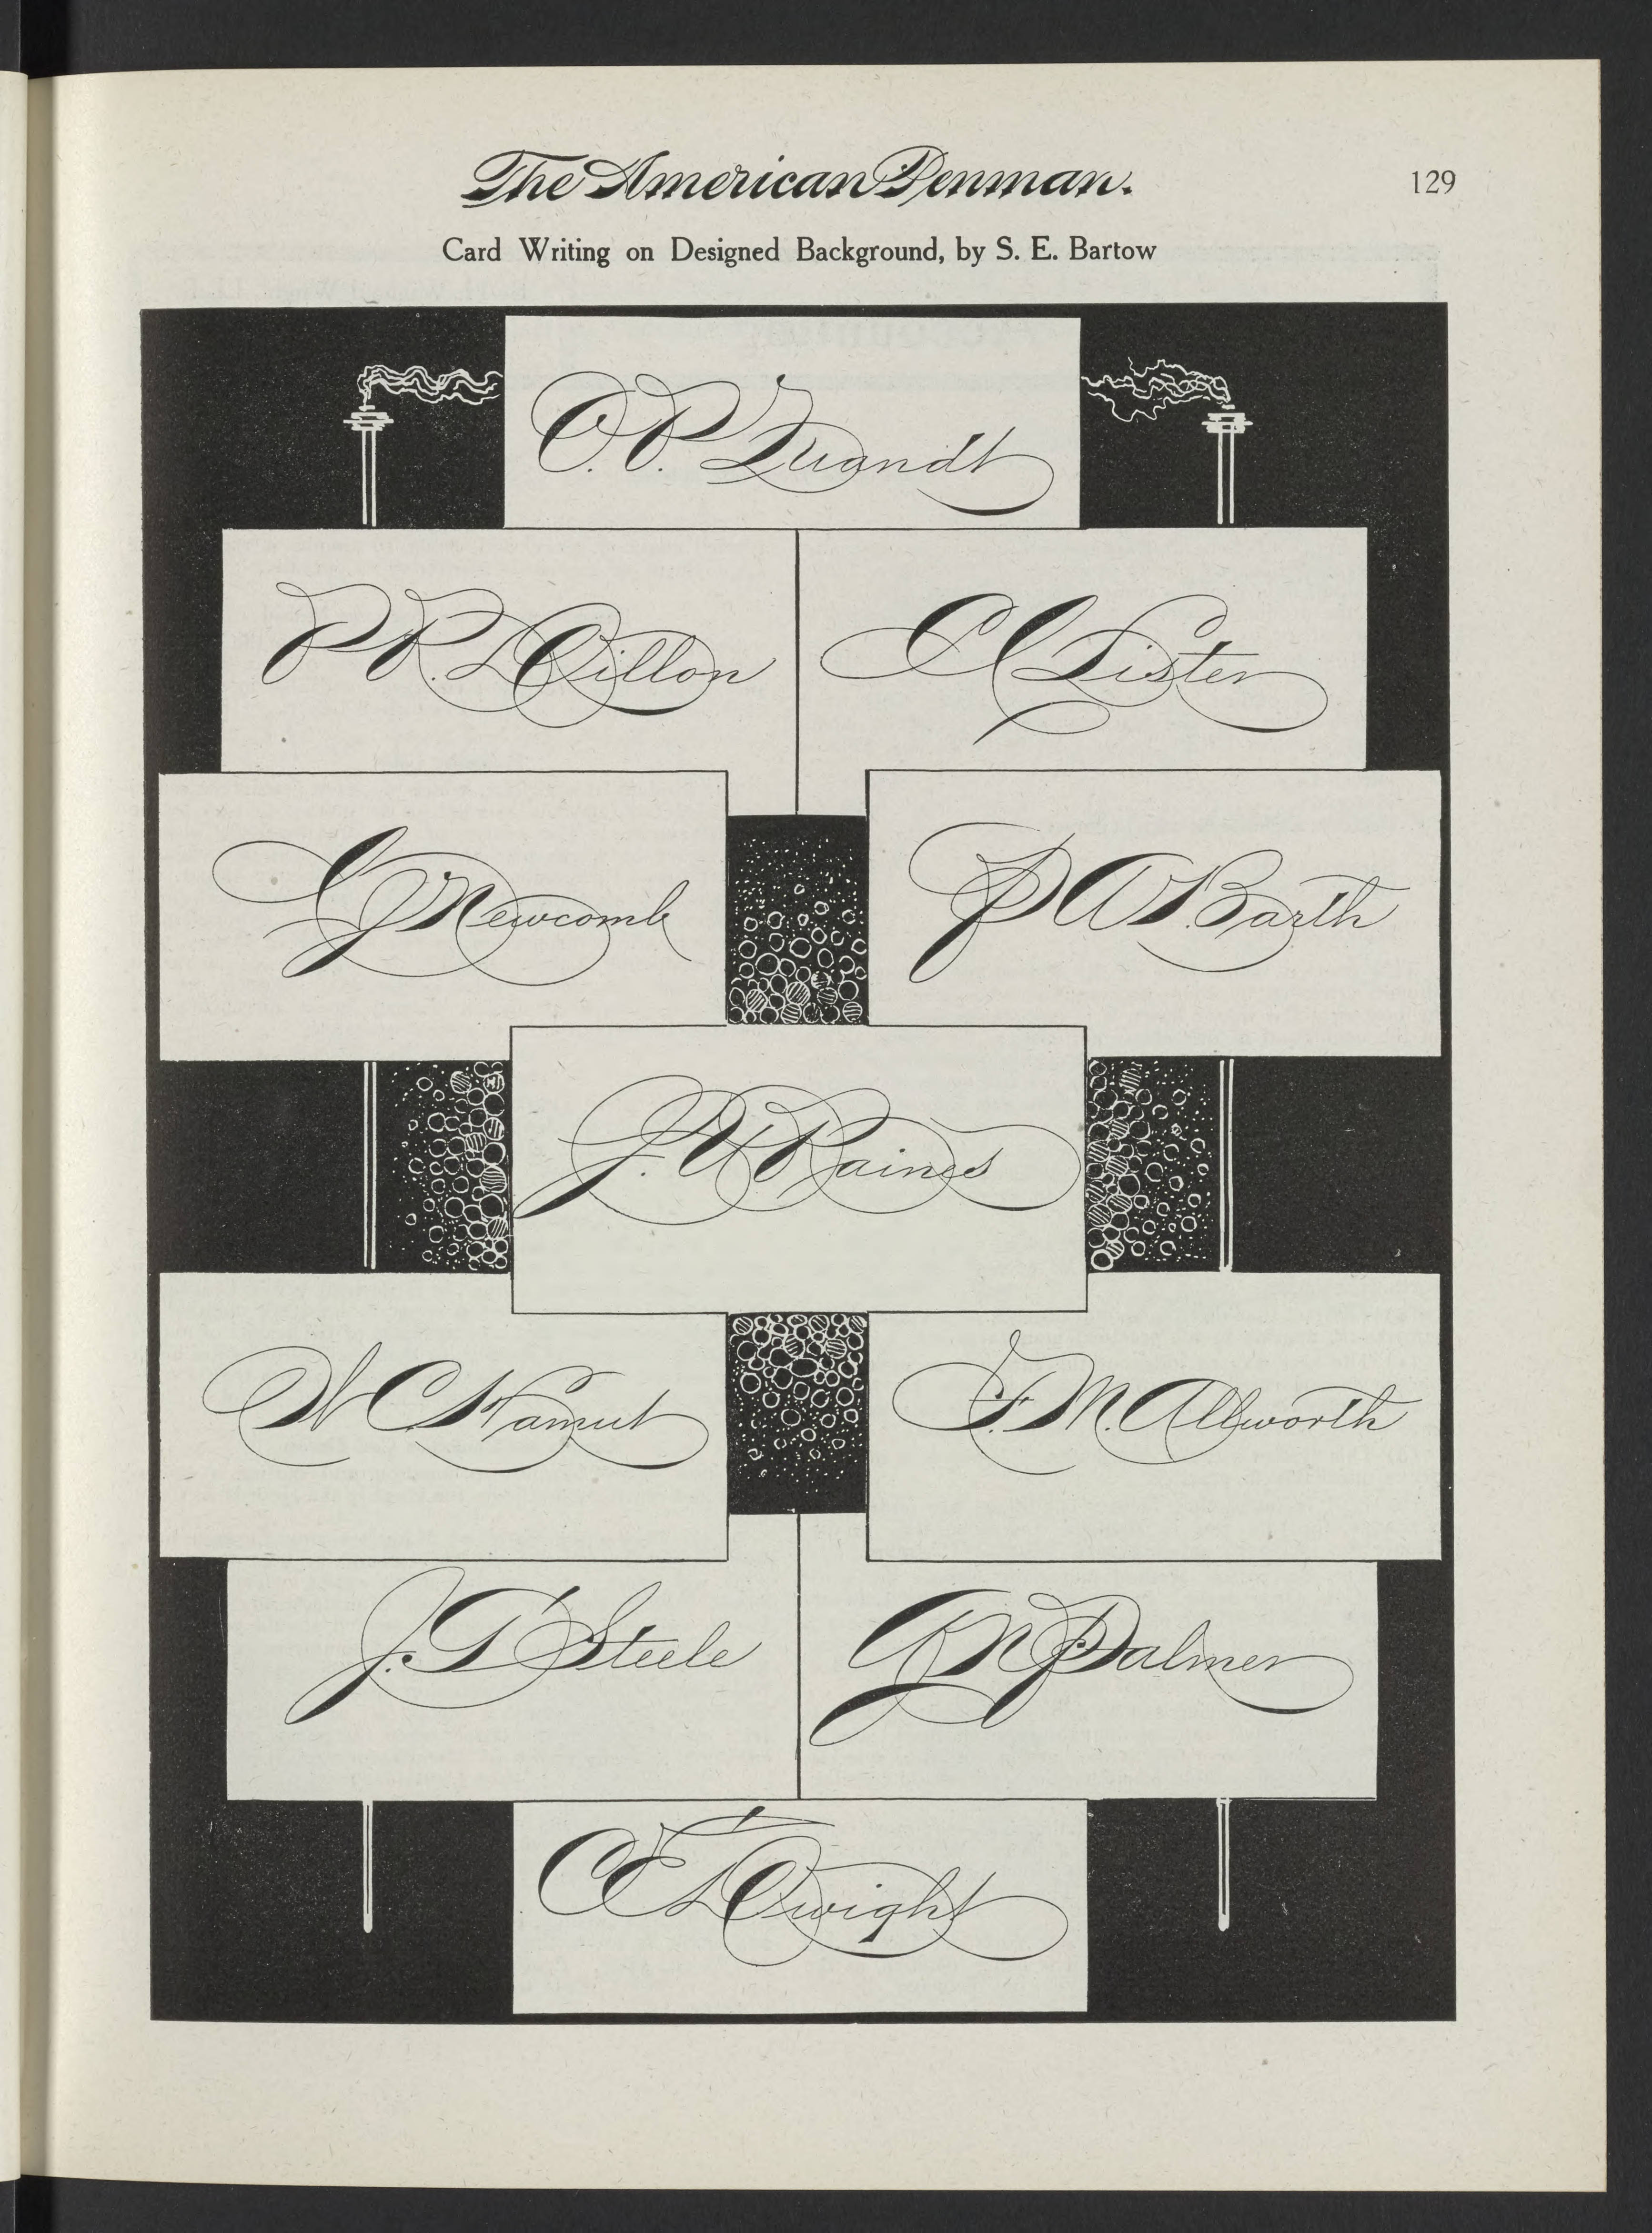 The American Penman.
129
Card Writing on Designed Background, by S. E. Bartow
O. P. Quandt
P. R. Dillon
C L Lister
G Newcomb
P W Barth
J. W Raines
W C
F. M. Allworth
J. G Steele
G N Palmer
C E Dwight